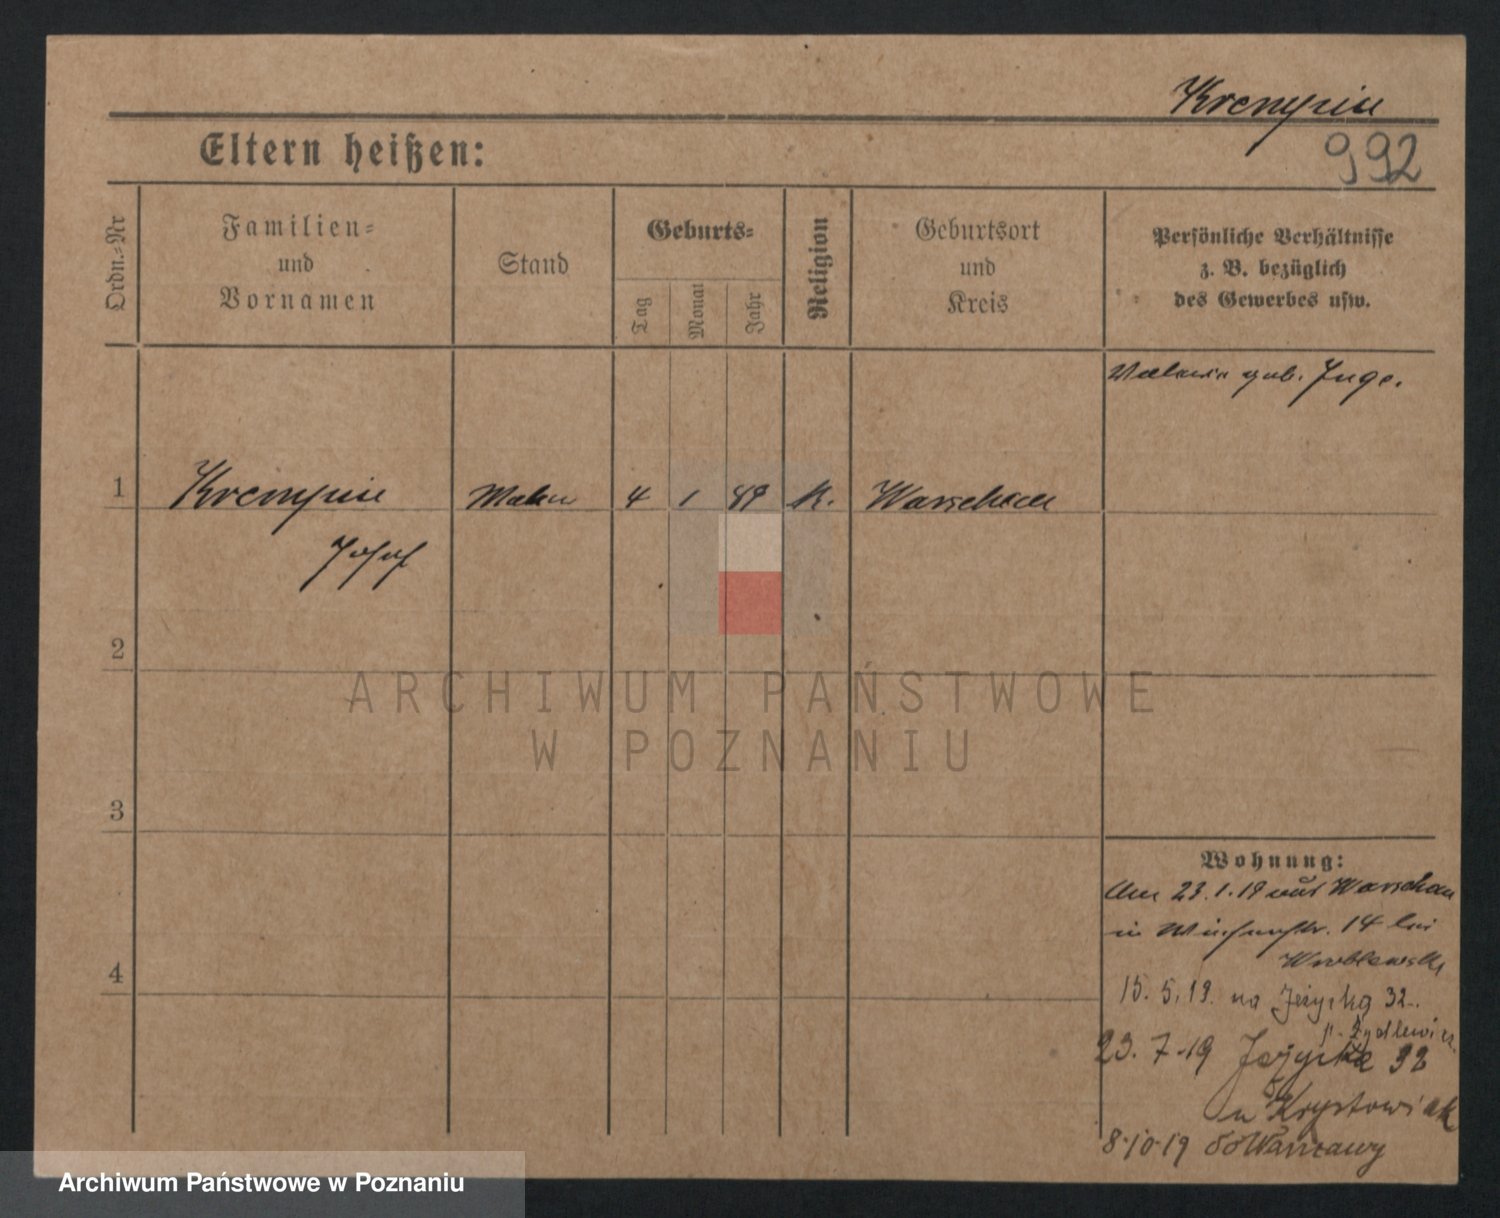 Krempin
992
Eltern heißen:
Ordn.-Nr
Familien-
und
Vornamen
Stand
Geburts-
Tag
Monat
Jahr
Religion
Geburtsort
und
Kreis
Persönliche Verhältnisse
z. B. bezüglich
des Gewerbes usw.
geb.
1
Krempin
4
1
89
K.
Warschau
Josef
2
ARCHIWUM PAŃSTWOWE
W POZNANIU
3
Wohnung:
Am 23.1.19 aus Warschau
in 14 bei
Wroblewski
15.5.19. na Jeżycką 32.
p. Żydlewicz
23.7.19 Jeżycka 32
u Krystowiak
8.10.19 do Warszawy
4
Archiwum Państwowe w Poznaniu